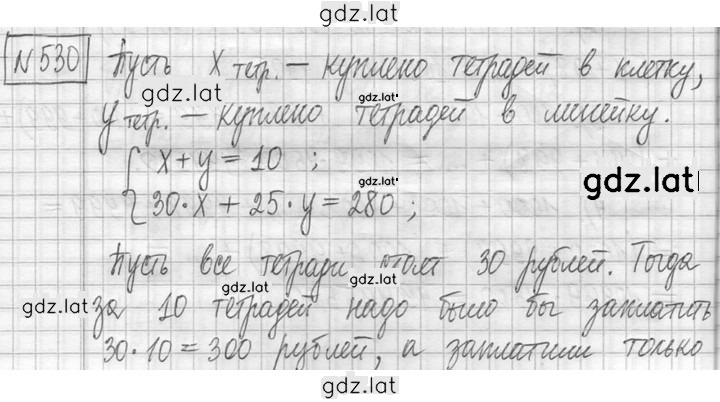 gdz.lat
№530 Пусть x тетр. – куплено тетрадей в клетку,
gdz.lat gdz.lat
y тетр. – куплено тетрадей в линейку.
x + y = 10 ;
gdz.lat gdz.lat
30·x + 25·y = 280 ;
Пусть все тетради стоят 30 рублей. Тогда
gdz.lat gdz.lat gdz.lat
за 10 тетрадей надо было бы заплатить
30·10 = 300 рублей, а заплатили только
gdz.lat